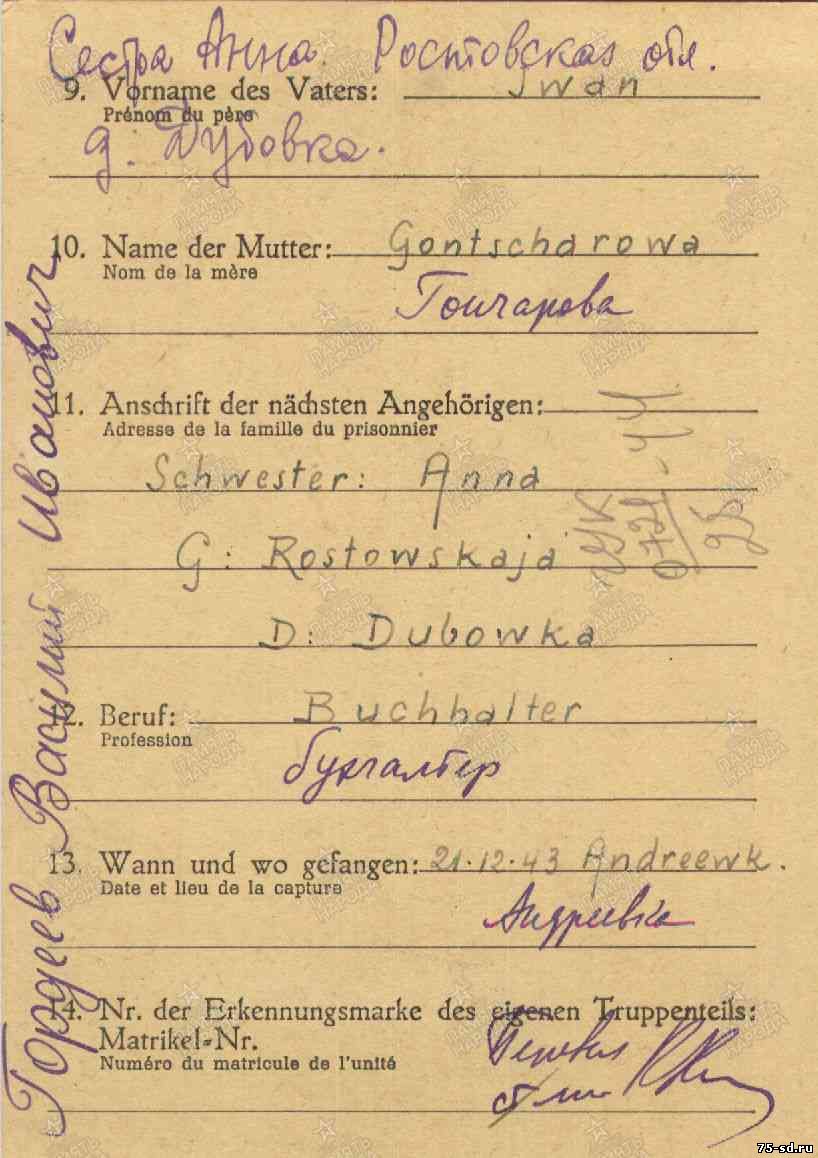 Сестра Анна. Ростовская обл.
9. Vorname des Vaters: Iwan
Prénom du père
д. Дубовка.
10. Name der Mutter: Gontscharowa
Nom de la mère
Гончарова
11. Anschrift der nächsten Angehörigen:
Adresse de la famille du prisonnier
Schwester: Anna
G: Rostowskaja
D: Dubowka
12. Beruf: Buchhalter
Profession
бухгалтер
13. Wann und wo gefangen: 21.12.43 Andreewk.
Date et lieu de la capture
Андреевка
14. Nr. der Erkennungsmarke des eigenen Truppenteils:
Matrikel=Nr.
Numéro du matricule de l'unité
Гордеев Василий Иванович
ПАМЯТЬ НАРОДА
75-sd.ru